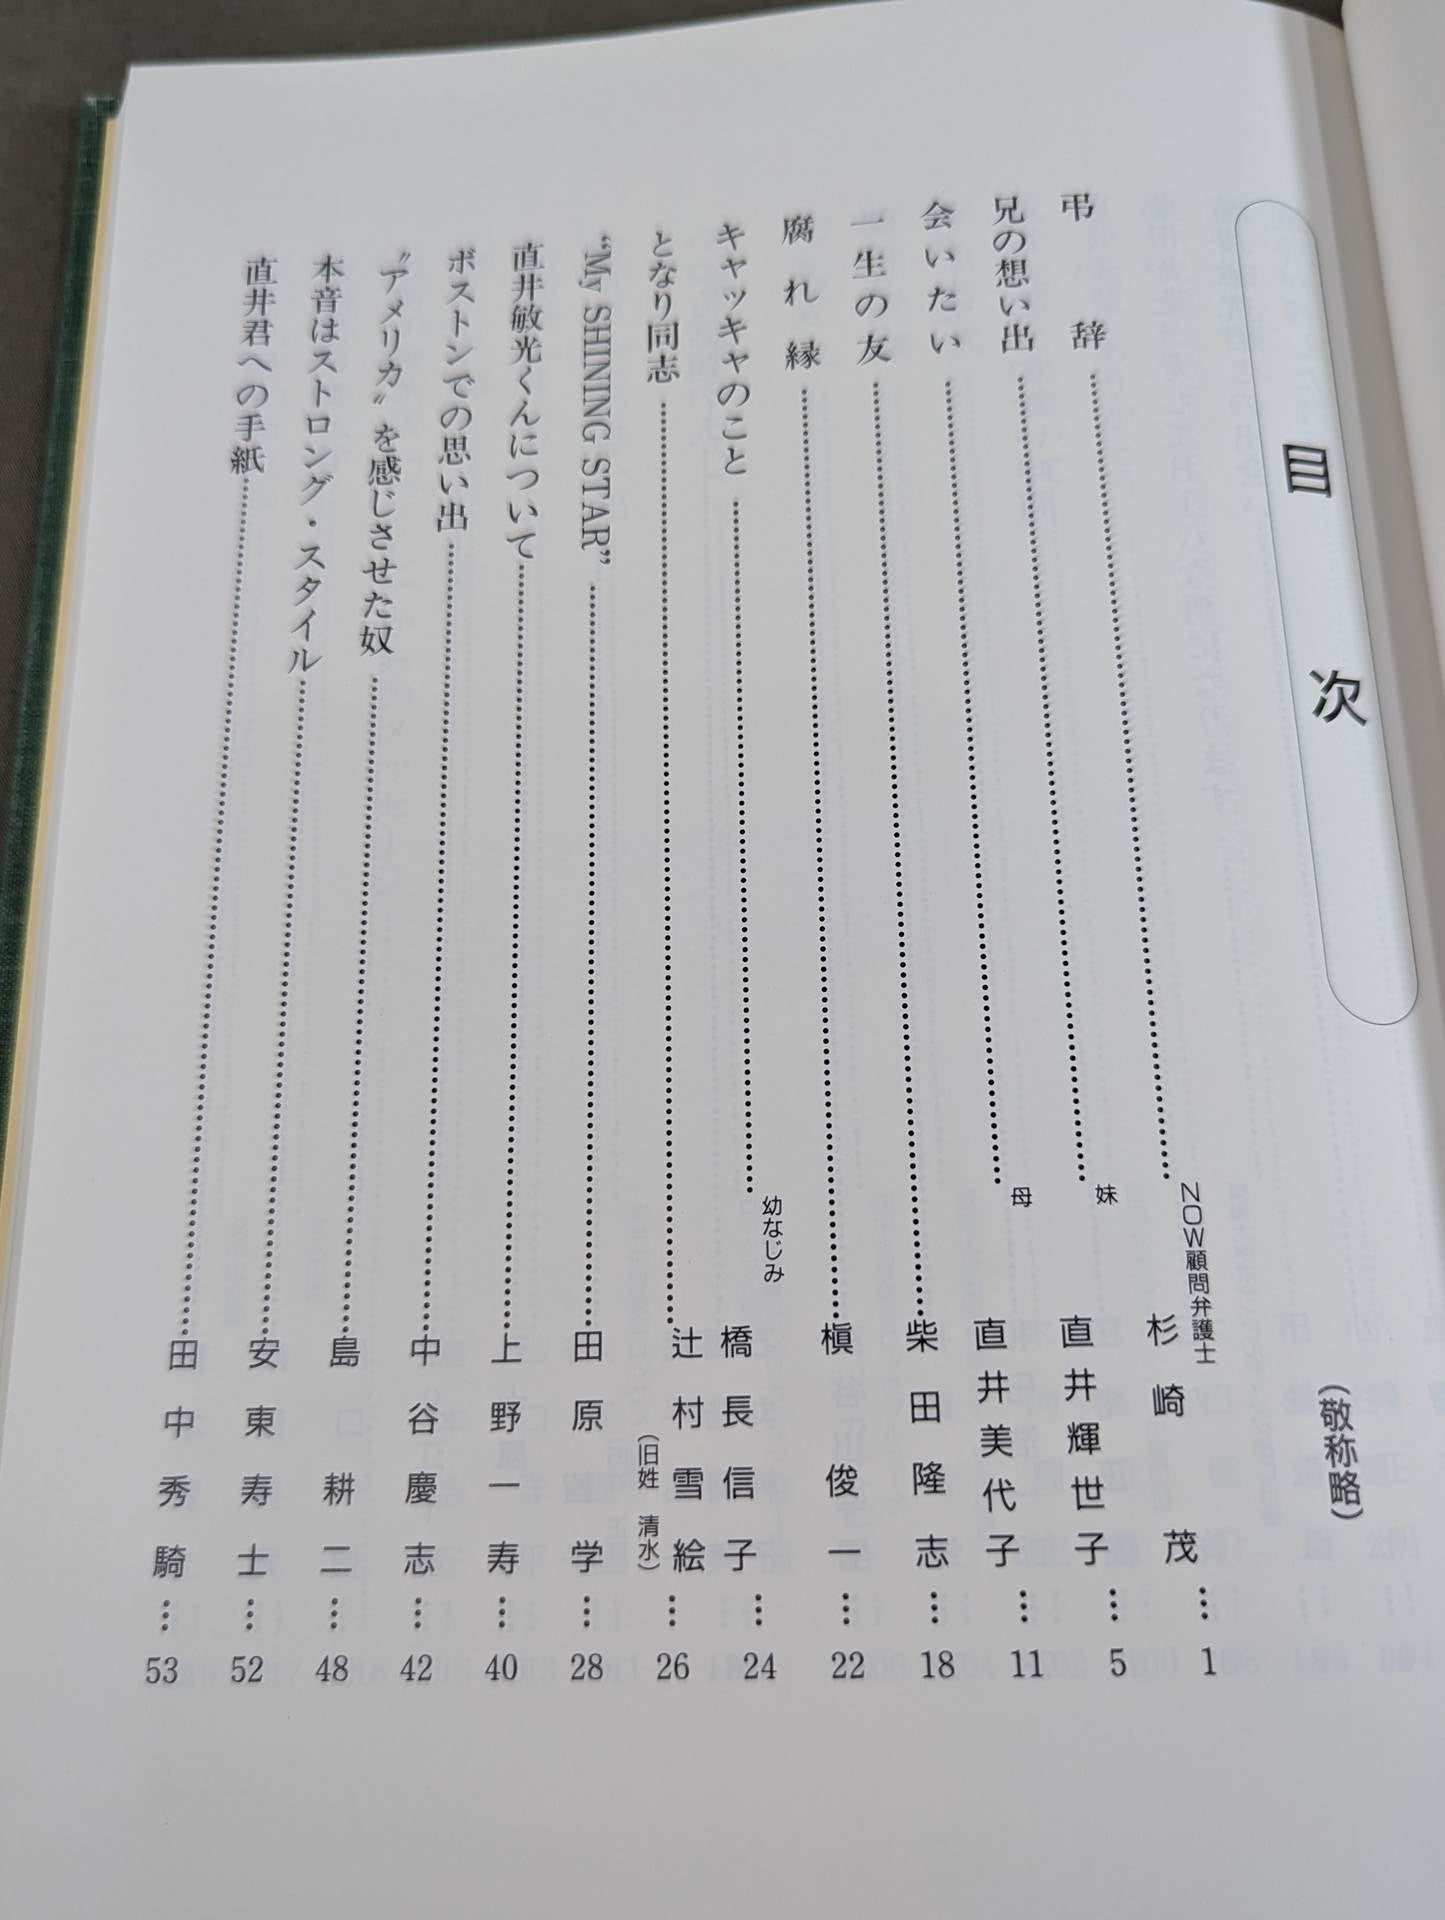 目次
(敬称略)
弔辞 NOW顧問弁護士 杉崎茂 1
兄の想い出 妹 直井輝世子 5
会いたい 母 直井美代子 11
一生の友 柴田隆志 18
腐れ縁 槇俊一 22
キャッキャのこと 幼なじみ 橋長信子 24
となり同志 辻村雪絵 (旧姓 清水) 26
“My SHINING STAR” 田原学 28
直井敏光くんについて 上野一寿 40
ボストンでの思い出 中谷慶志 42
〝アメリカ〟を感じさせた奴 島耕二 48
本音はストロング・スタイル 安東寿士 52
直井君への手紙 田中秀騎 53